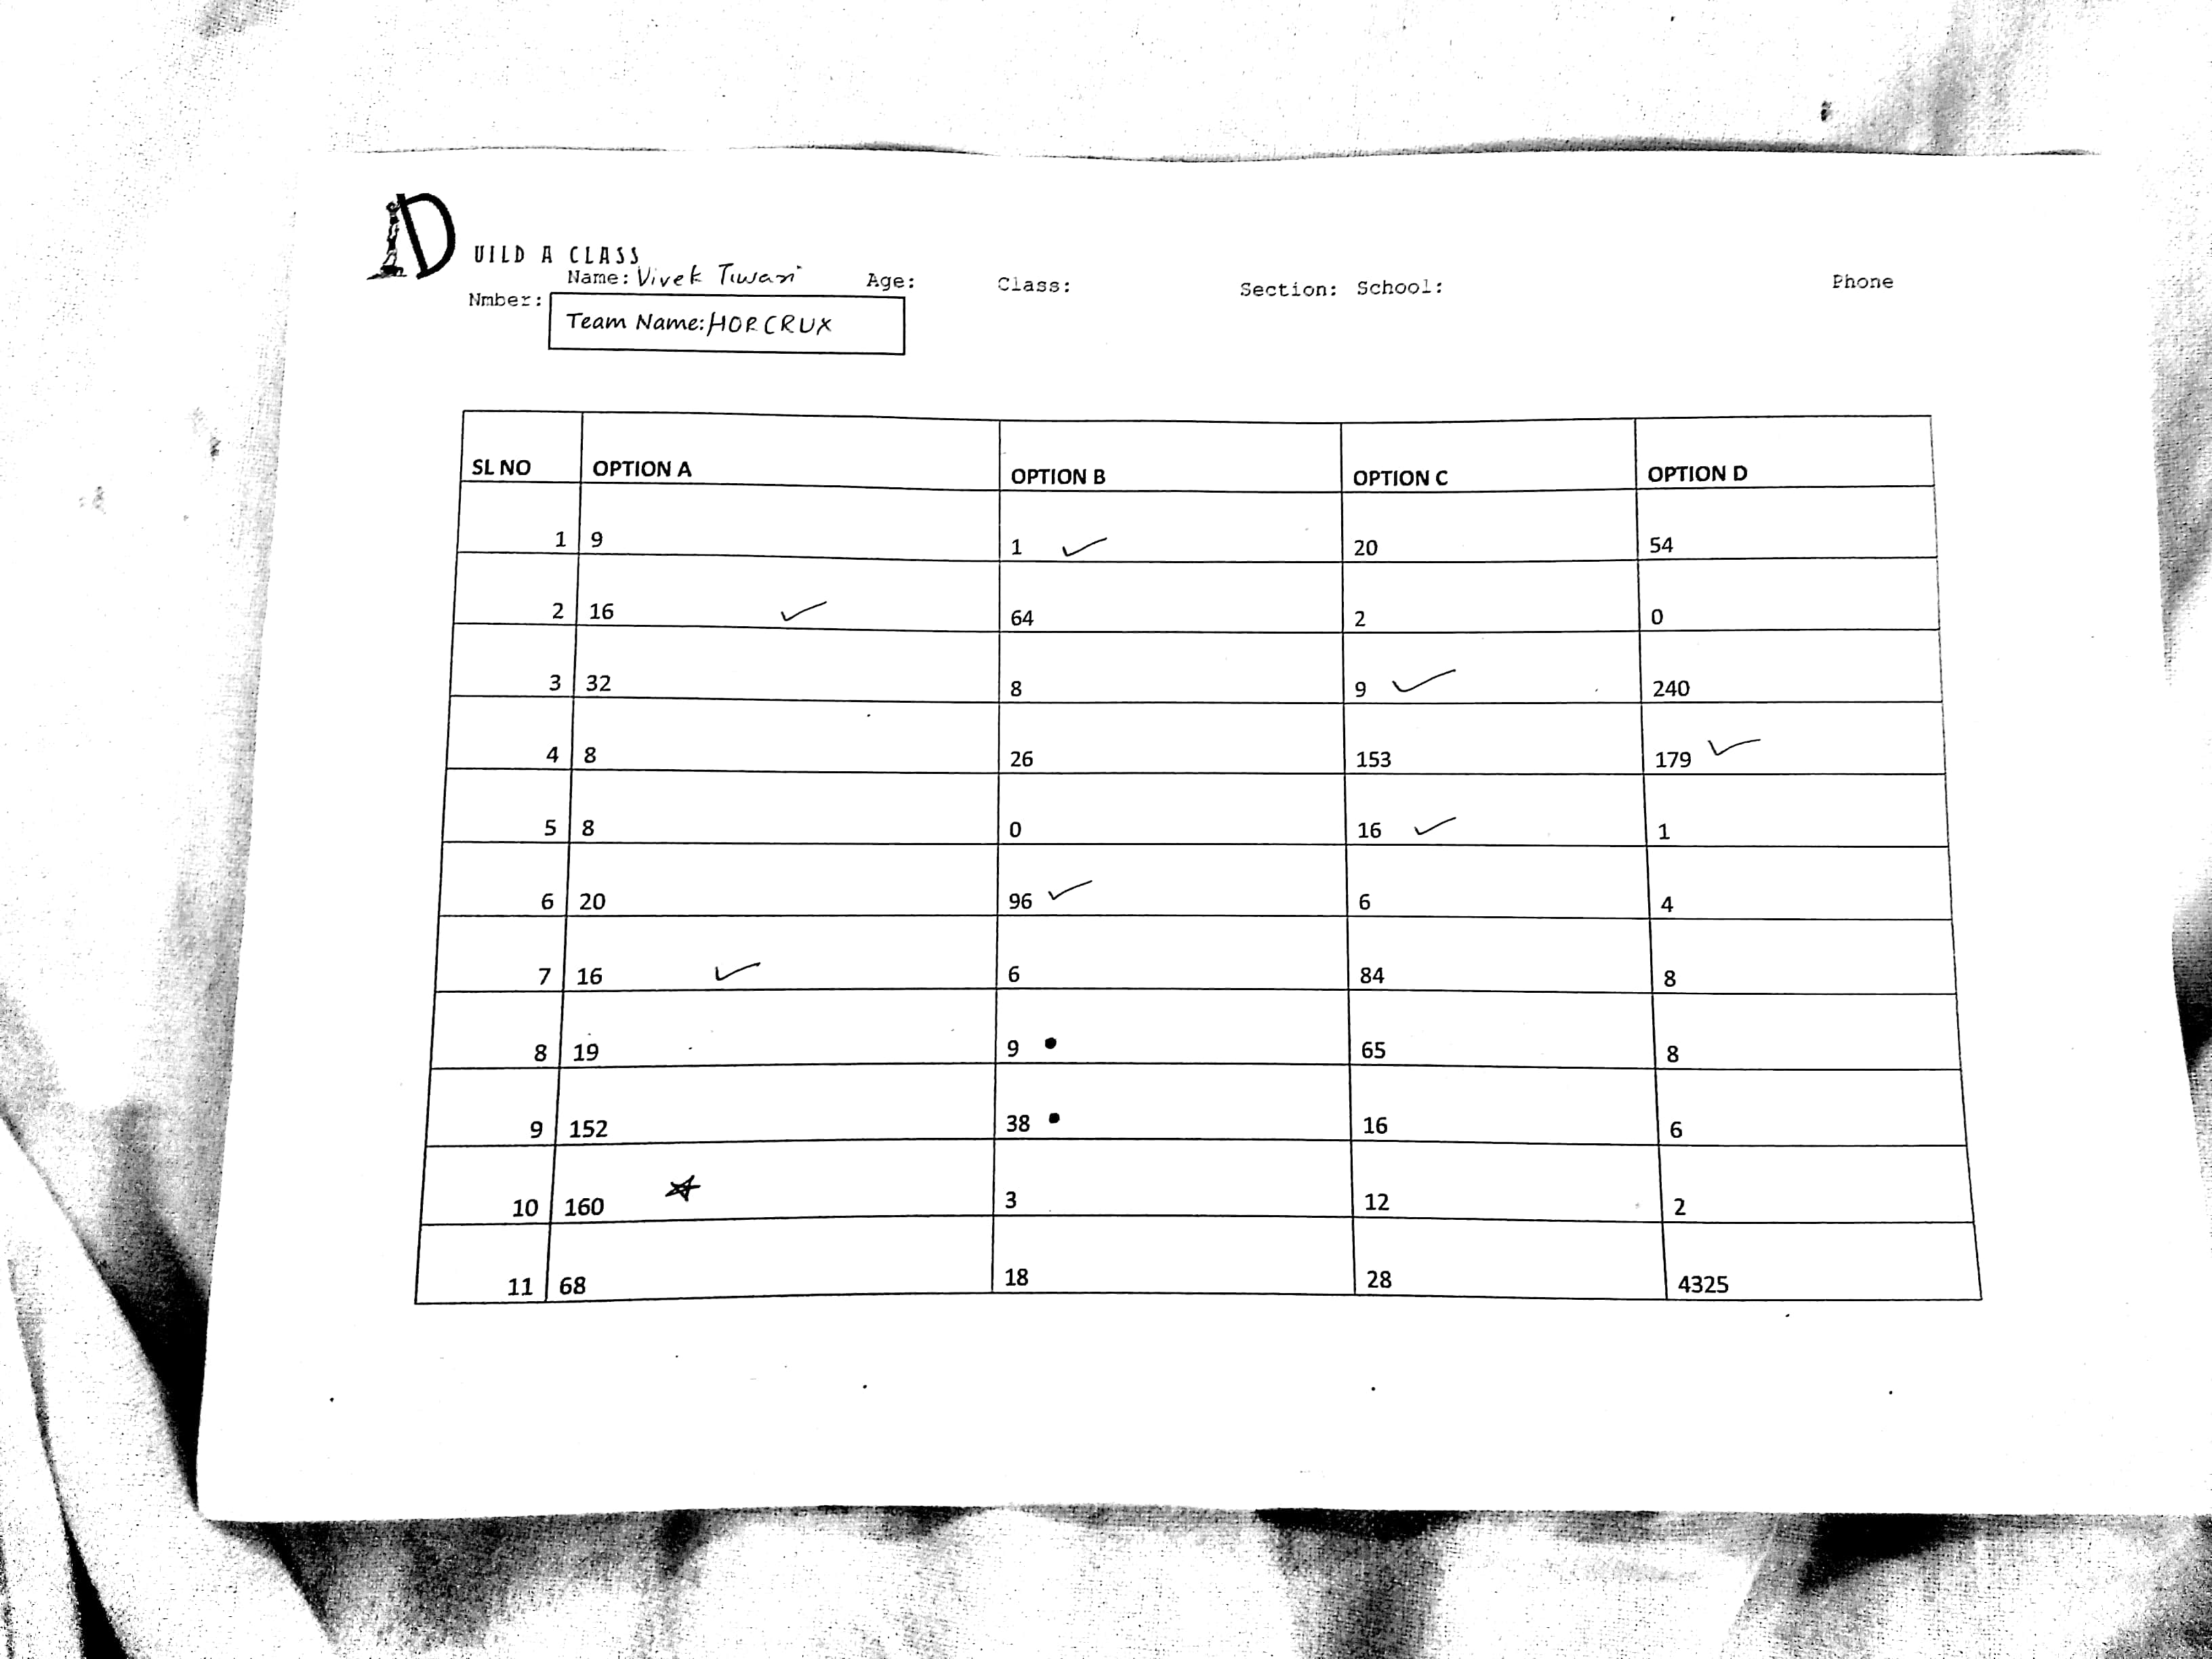 D UILD A CLASS
Name: Vivek Tiwari Age: Class: Section: School: Phone
Nmber:
Team Name: HORCRUX
SL NO OPTION A OPTION B OPTION C OPTION D
1 9 1 ✓ 20 54
2 16 ✓ 64 2 0
3 32 8 9 ✓ 240
4 8 26 153 179 ✓
5 8 0 16 ✓ 1
6 20 96 ✓ 6 4
7 16 ✓ 6 84 8
8 19 9 • 65 8
9 152 38 • 16 6
10 160 ☆ 3 12 2
11 68 18 28 4325